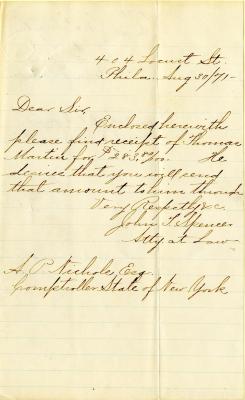 404 Locust St.
Phila Aug 30/71-
Dear Sir,
Enclosed herewith
please find receipt of Thomas
Martin for $283. /100. He
desires that you will send
that amount to him through
Very Respctly &c
John S. Spencer
Atty at Law
A. P. Nichols Esq.
Comptroller State of New York